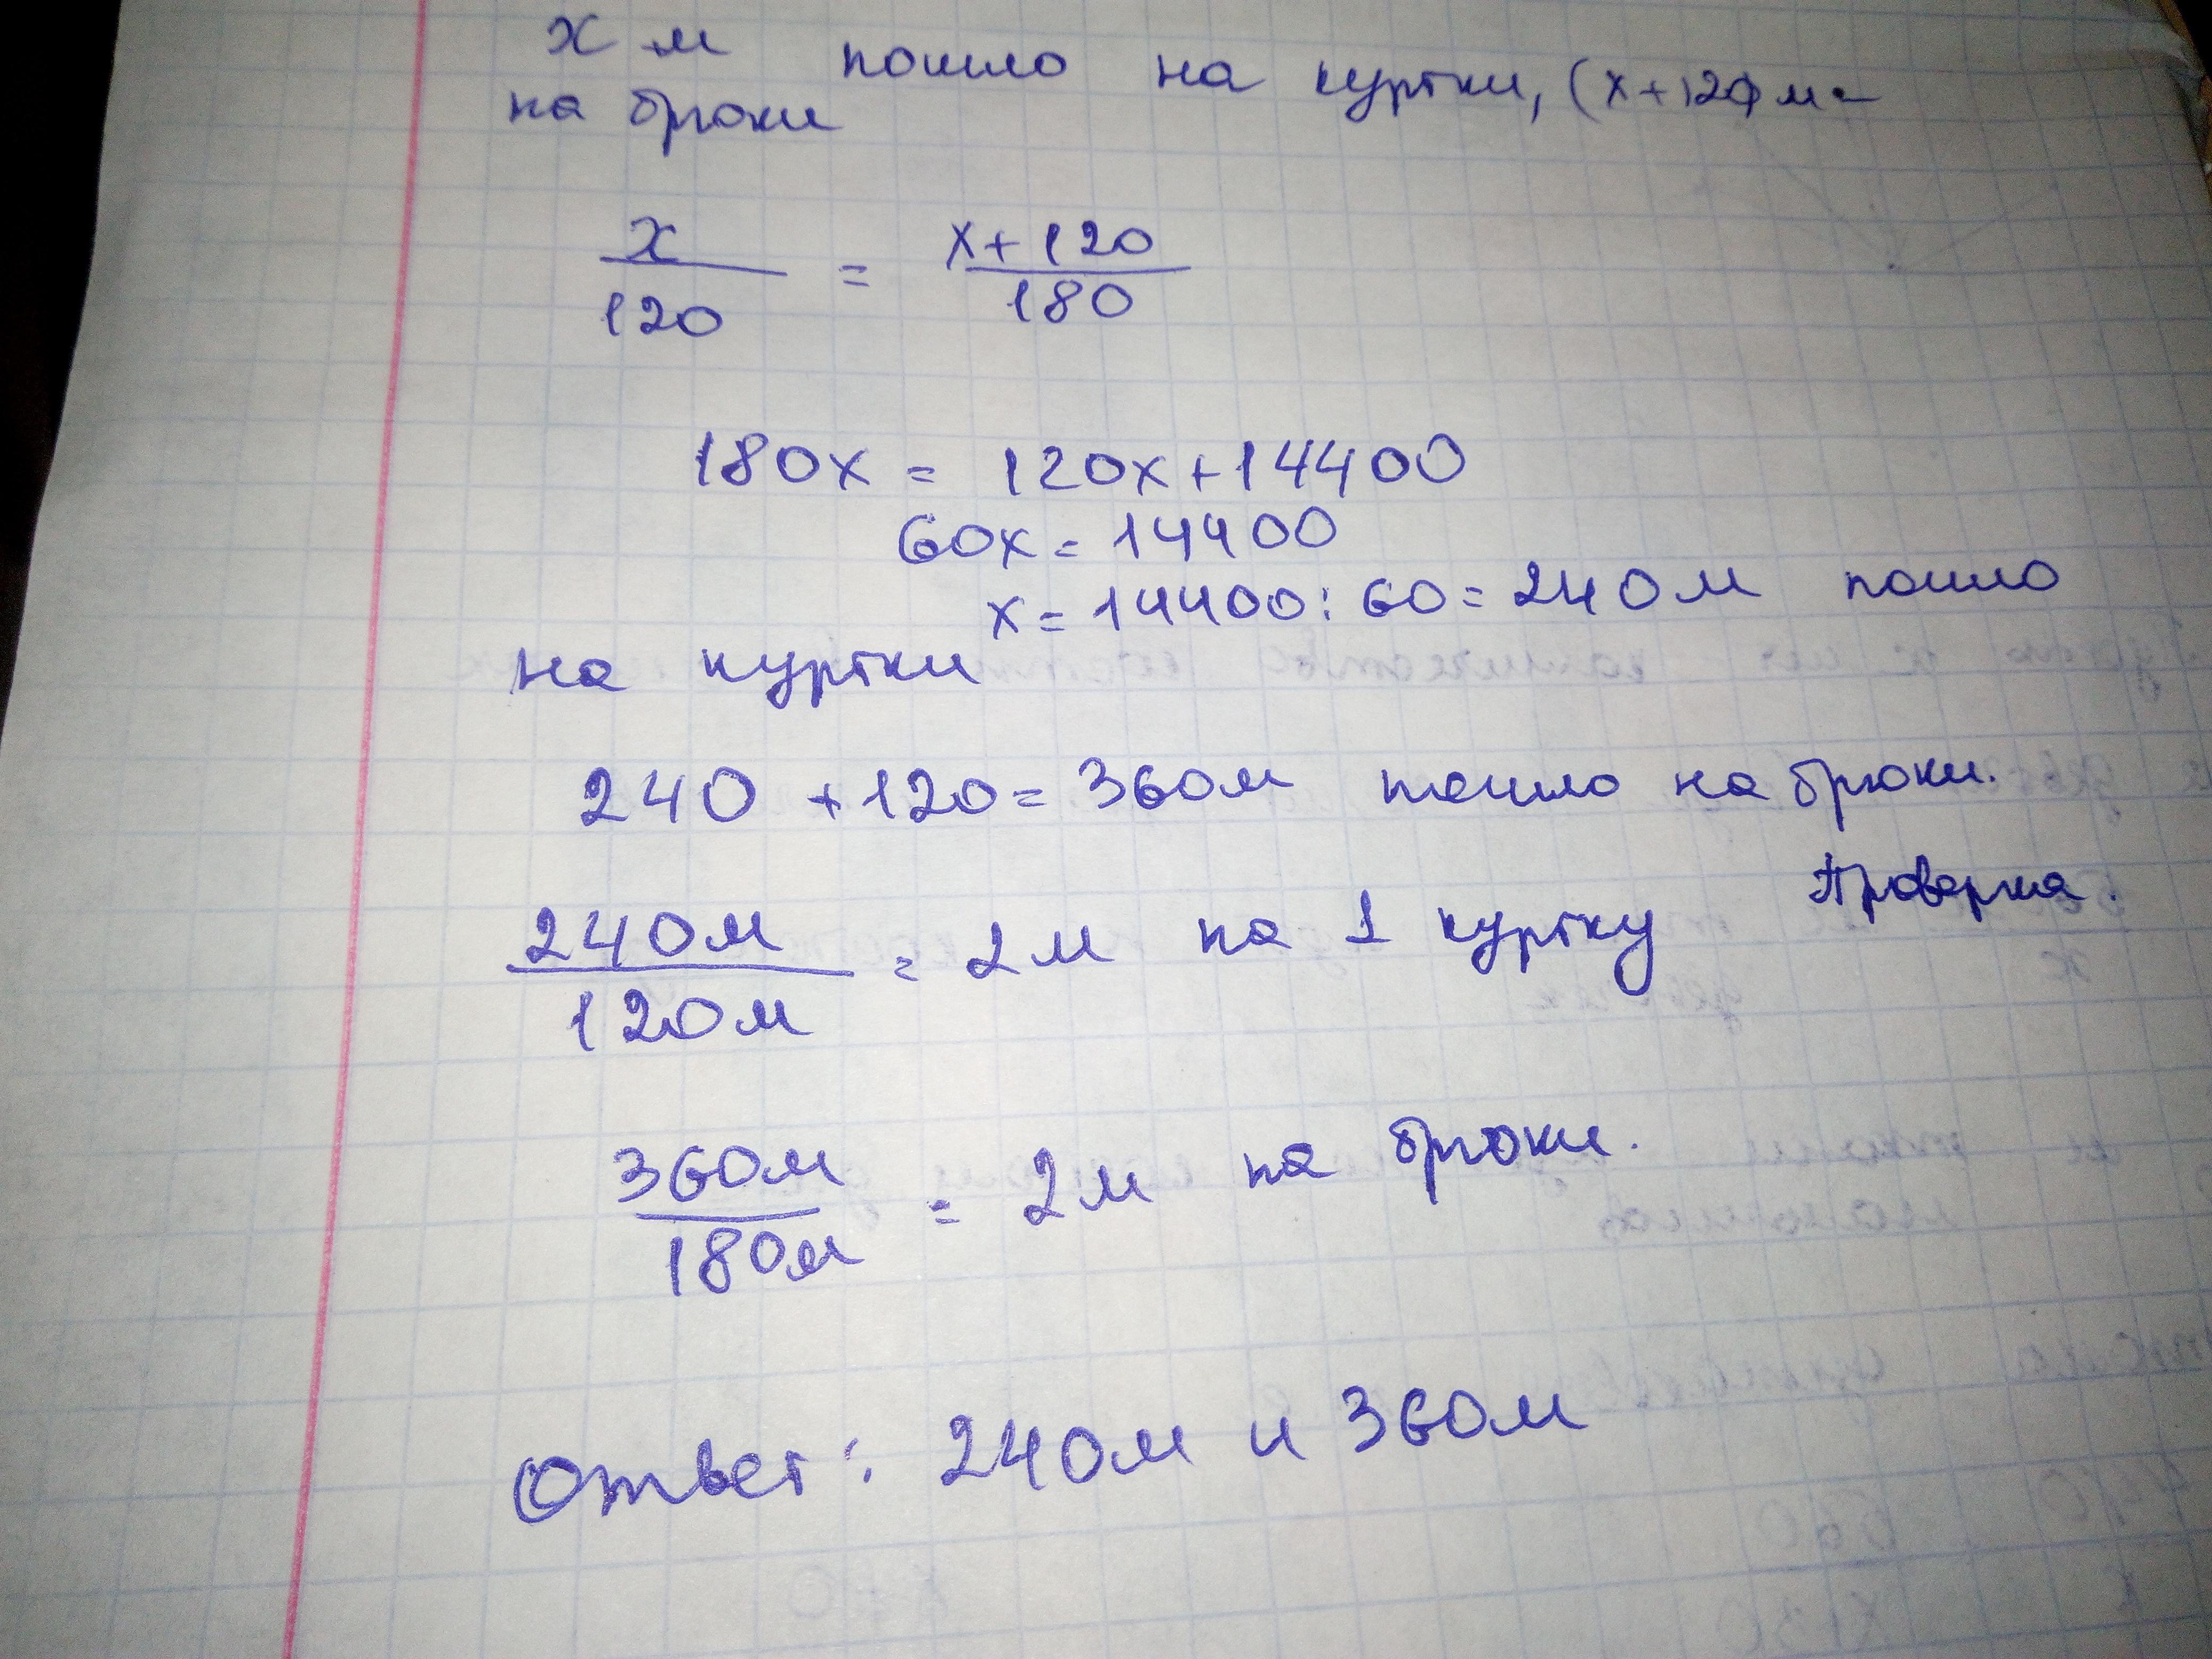 x м пошло на куртки, (x+120) м -
на брюки
x/120 = x+120/180
180x = 120x+14400
60x = 14400
x = 14400 : 60 = 240м пошло
на куртки
240 +120= 360м пошло на брюки.
Проверка.
240м/120м = 2м на 1 куртку
360м/180м = 2м на брюки.
Ответ: 240м и 360м